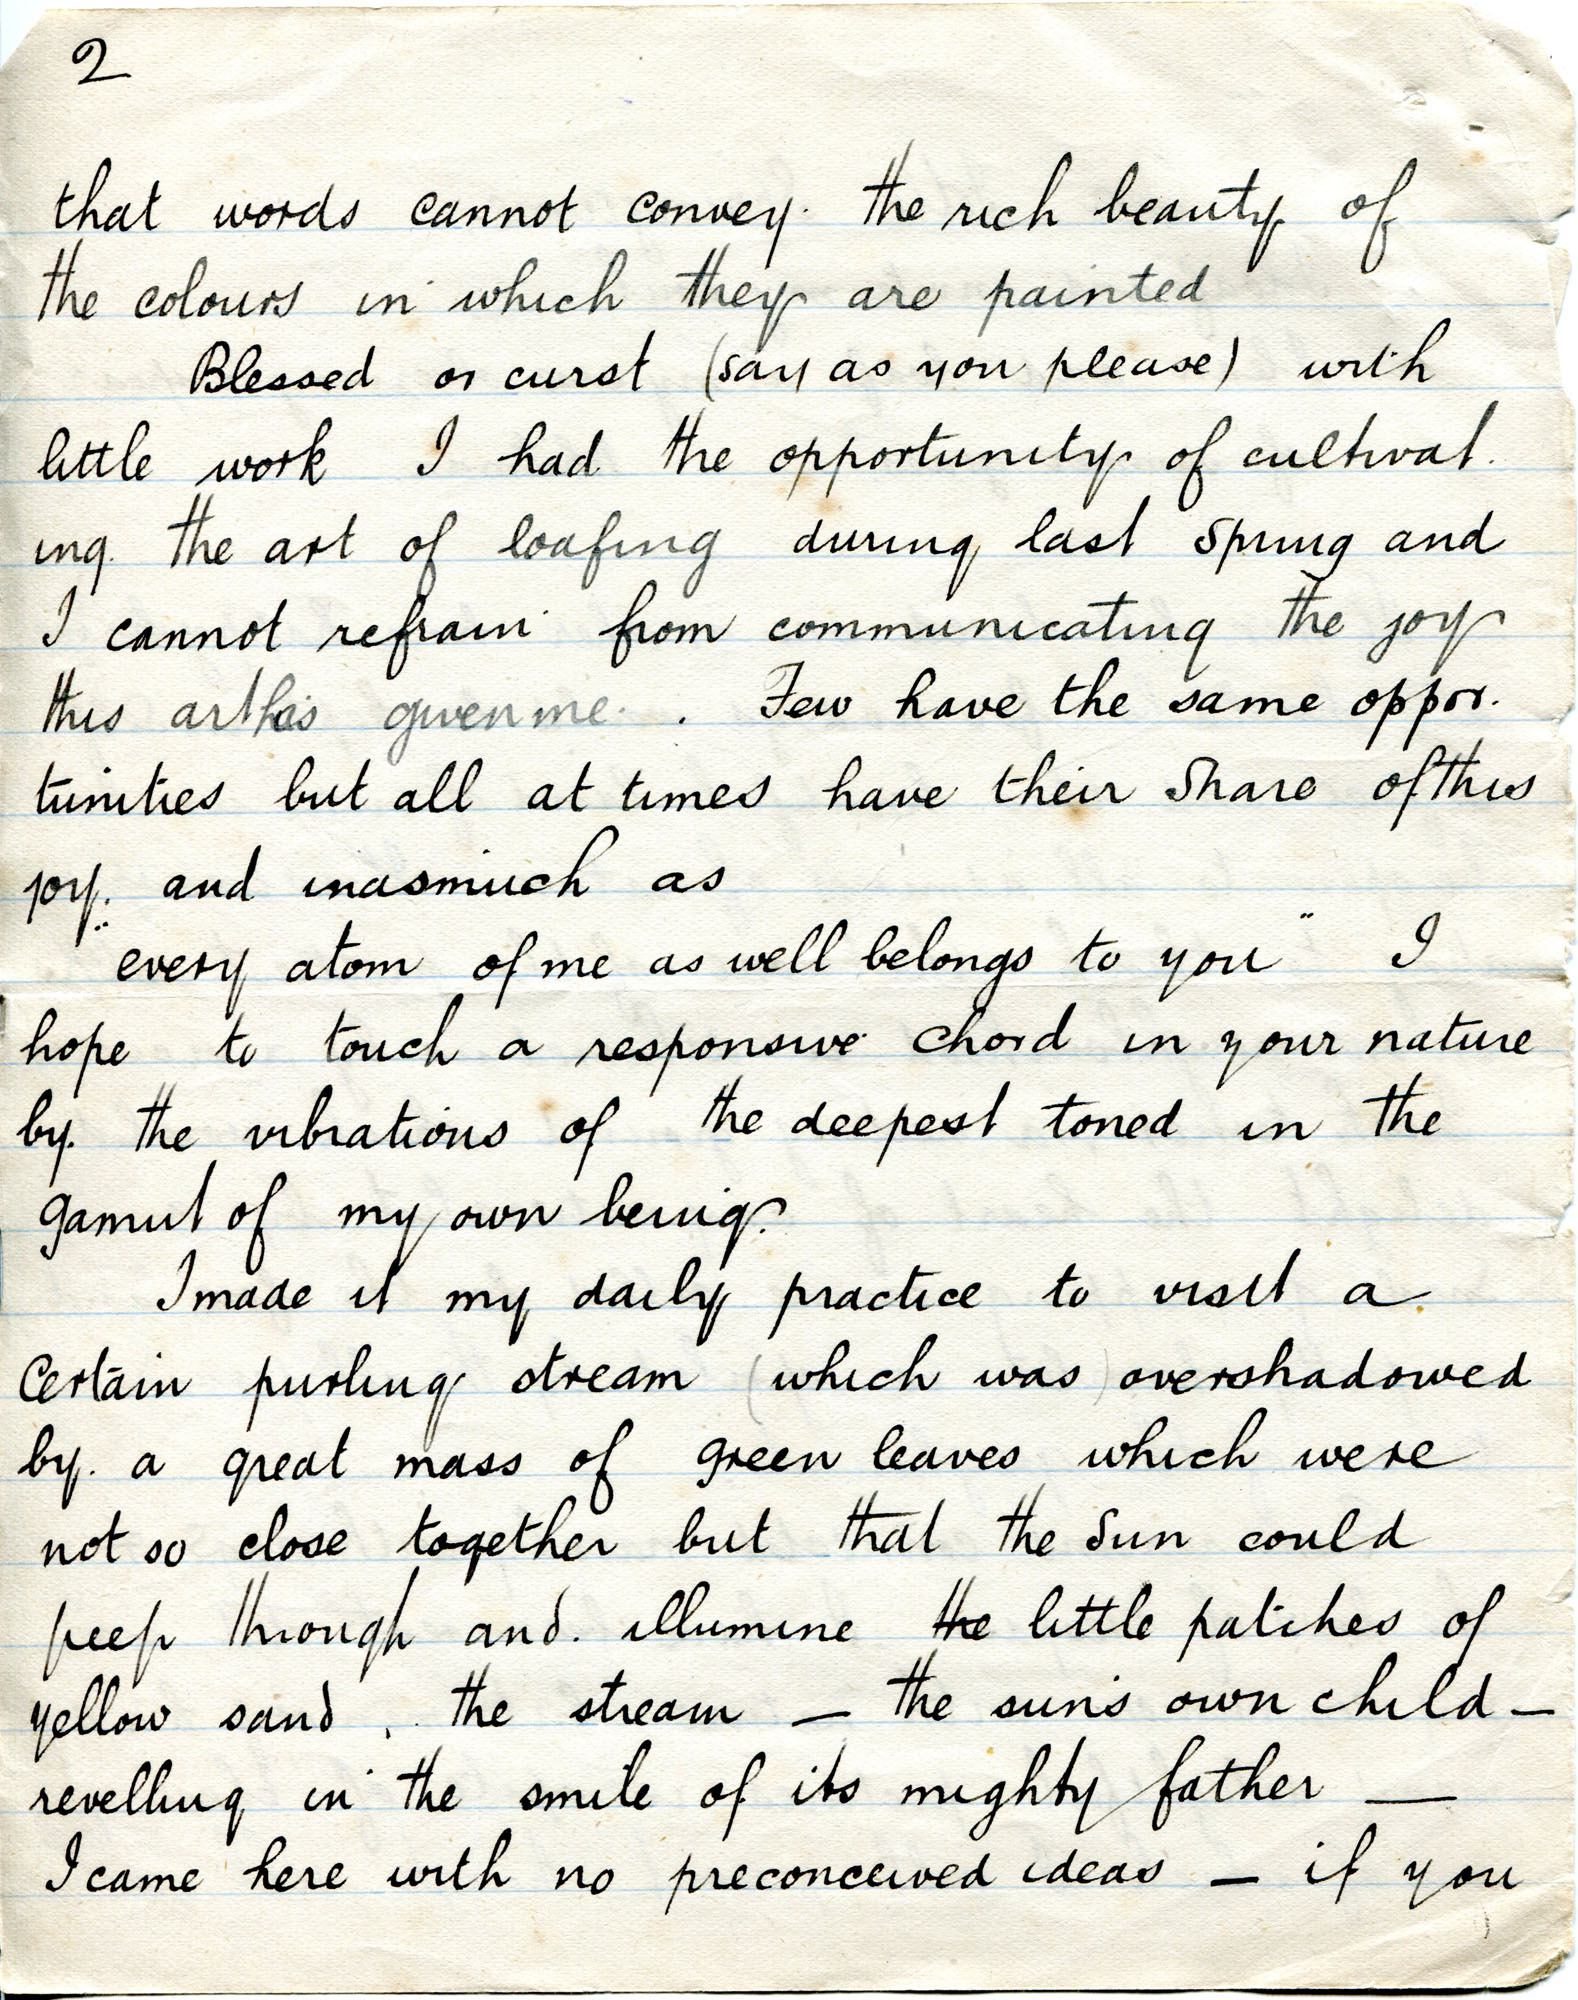 2
that words cannot convey. the rich beauty of
the colours in which they are painted
Blessed or curst (say as you please) with
little work I had the opportunity of cultivat-
ing the art of loafing during last Spring and
I cannot refrain from communicating the joy
this art has given me. Few have the same oppor-
tunities but all at times have their Share of this
joy. and inasmuch as
"every atom of me as well belongs to you" I
hope to touch a responsive chord in your nature
by the vibrations of the deepest toned in the
gamut of my own being.
I made it my daily practice to visit a
Certain purling stream (which was) overshadowed
by a great mass of green leaves which were
not so close together but that the Sun could
peep through and illumine the little patches of
yellow sand, the stream — the sun's own child —
revelling in the smile of its mighty father —
I came here with no preconceived ideas — if you